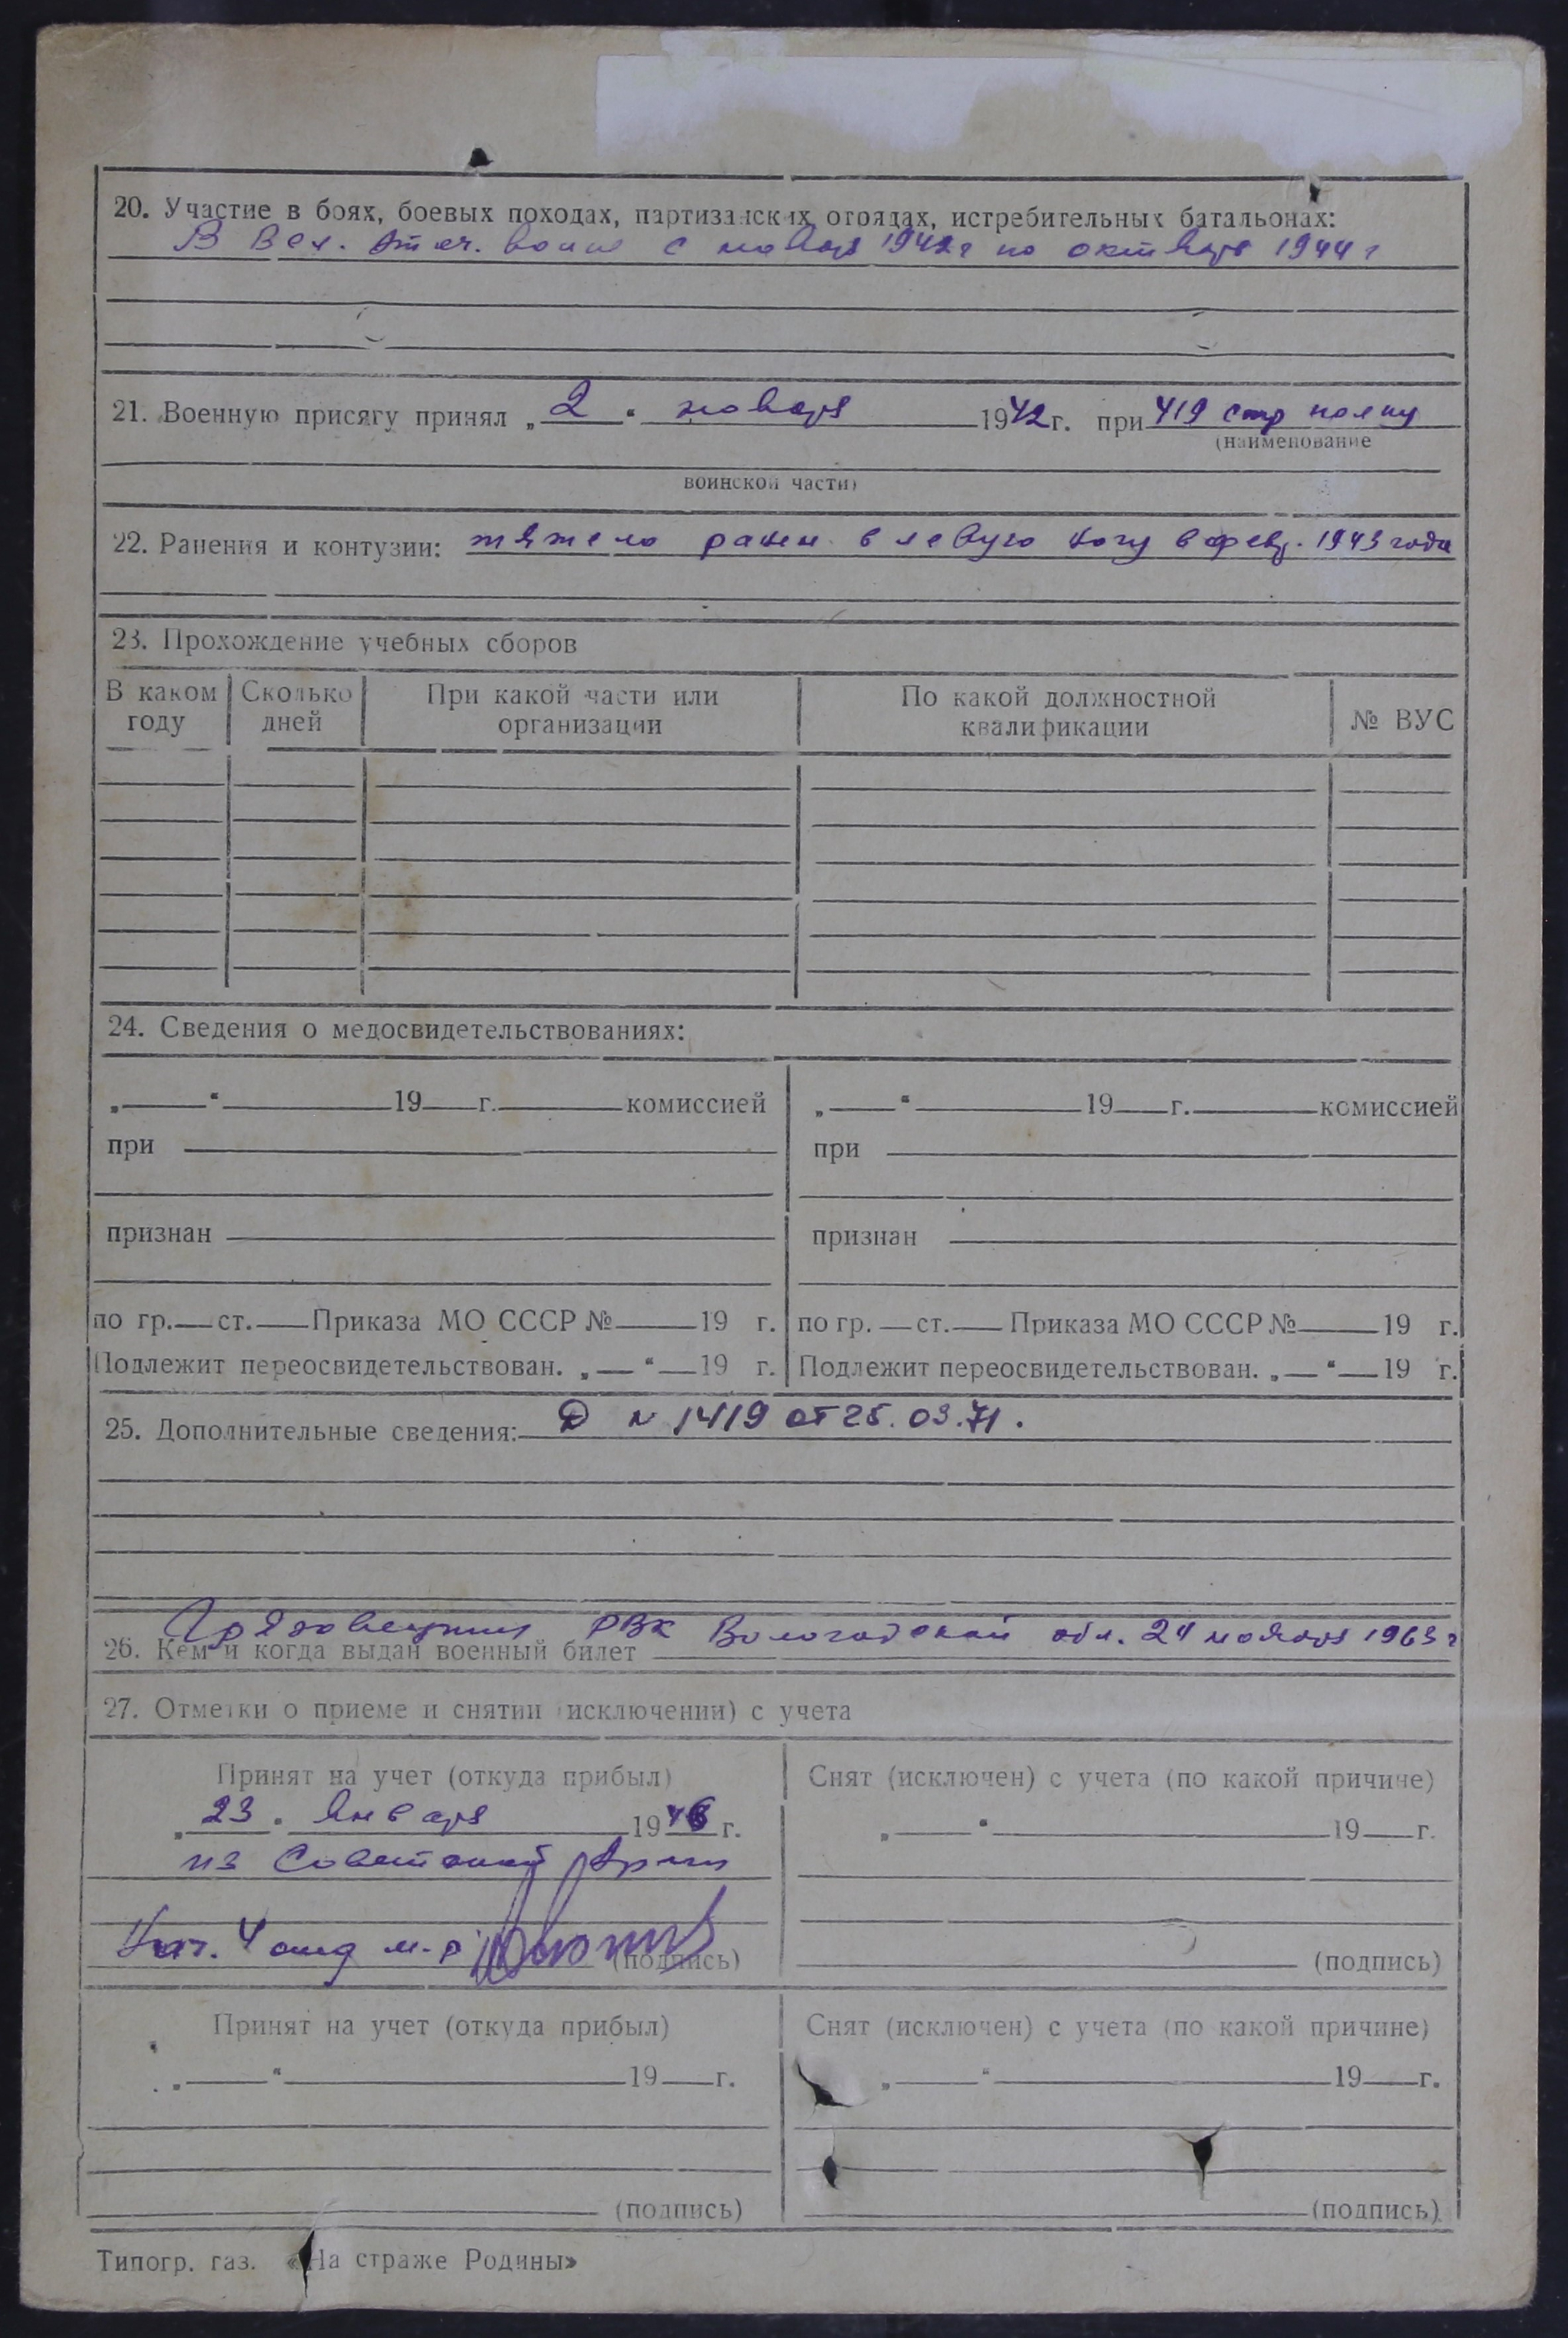 20. Участие в боях, боевых походах, партизанских отрядах, истребительных батальонах:
В Вел. Отеч. войне с ноября 1942г по октябрь 1944 г
21. Военную присягу принял „ 2 " ноября 1942г. при 419 стр полку
(наименование
воинской части)
22. Ранения и контузии: тяжело ранен в левую ногу в февр. 1943 года
23. Прохождение учебных сборов
В каком году | Сколько дней | При какой части или организации | По какой должностной квалификации | № ВУС
24. Сведения о медосвидетельствованиях:
„ " 19 г. комиссией | „ " 19 г. комиссией
при | при
признан | признан
по гр. ст. Приказа МО СССР № 19 г. | по гр. ст. Приказа МО СССР № 19 г.
Подлежит переосвидетельствован. „ " 19 г. | Подлежит переосвидетельствован. „ " 19 г.
25. Дополнительные сведения: Д № 1419 от 25.03.71.
26. Кем и когда выдан военный билет Грязовецким РВК Вологодской обл. 24 ноября 1963 г
27. Отметки о приеме и снятии (исключении) с учета
Принят на учет (откуда прибыл) | Снят (исключен) с учета (по какой причине)
„ 23 " Января 19 г. | „ " 19 г.
из Советской Армии
Нач. 4 отд м-р (подпись) | (подпись)
Принят на учет (откуда прибыл) | Снят (исключен) с учета (по какой причине)
„ " 19 г. | „ " 19 г.
(подпись) | (подпись)
Типогр. газ. «На страже Родины»